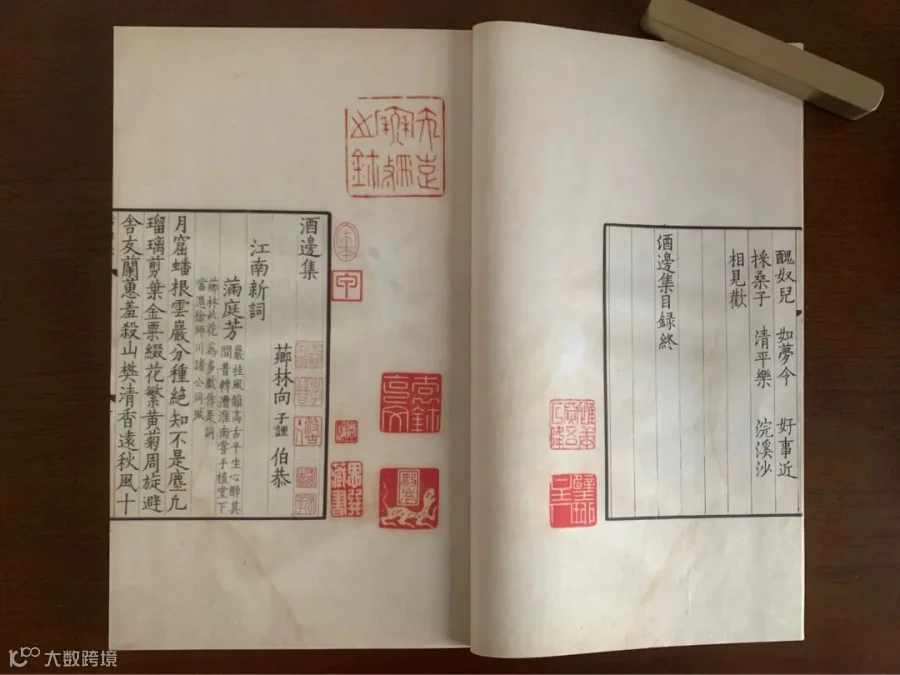 醜奴兒 如夢令 好事近
採桑子 清平樂 浣溪沙
相見歡
酒邊集目録終
酒邊集
江南新詞
薌林向子諲伯恭
滿庭芳
巖桂風韻高古平生心醉其
間昔轉漕淮南嘗手植堂下
薌林此花為多戲作是詞
當邀徐師川諸公同賦
月窟蟠根雲巖分種絶知不是塵凡
瑠璃剪葉金粟綴花繁黄菊周旋避
舍友蘭蕙羞殺山礬清香遠秋風十
大数跨境